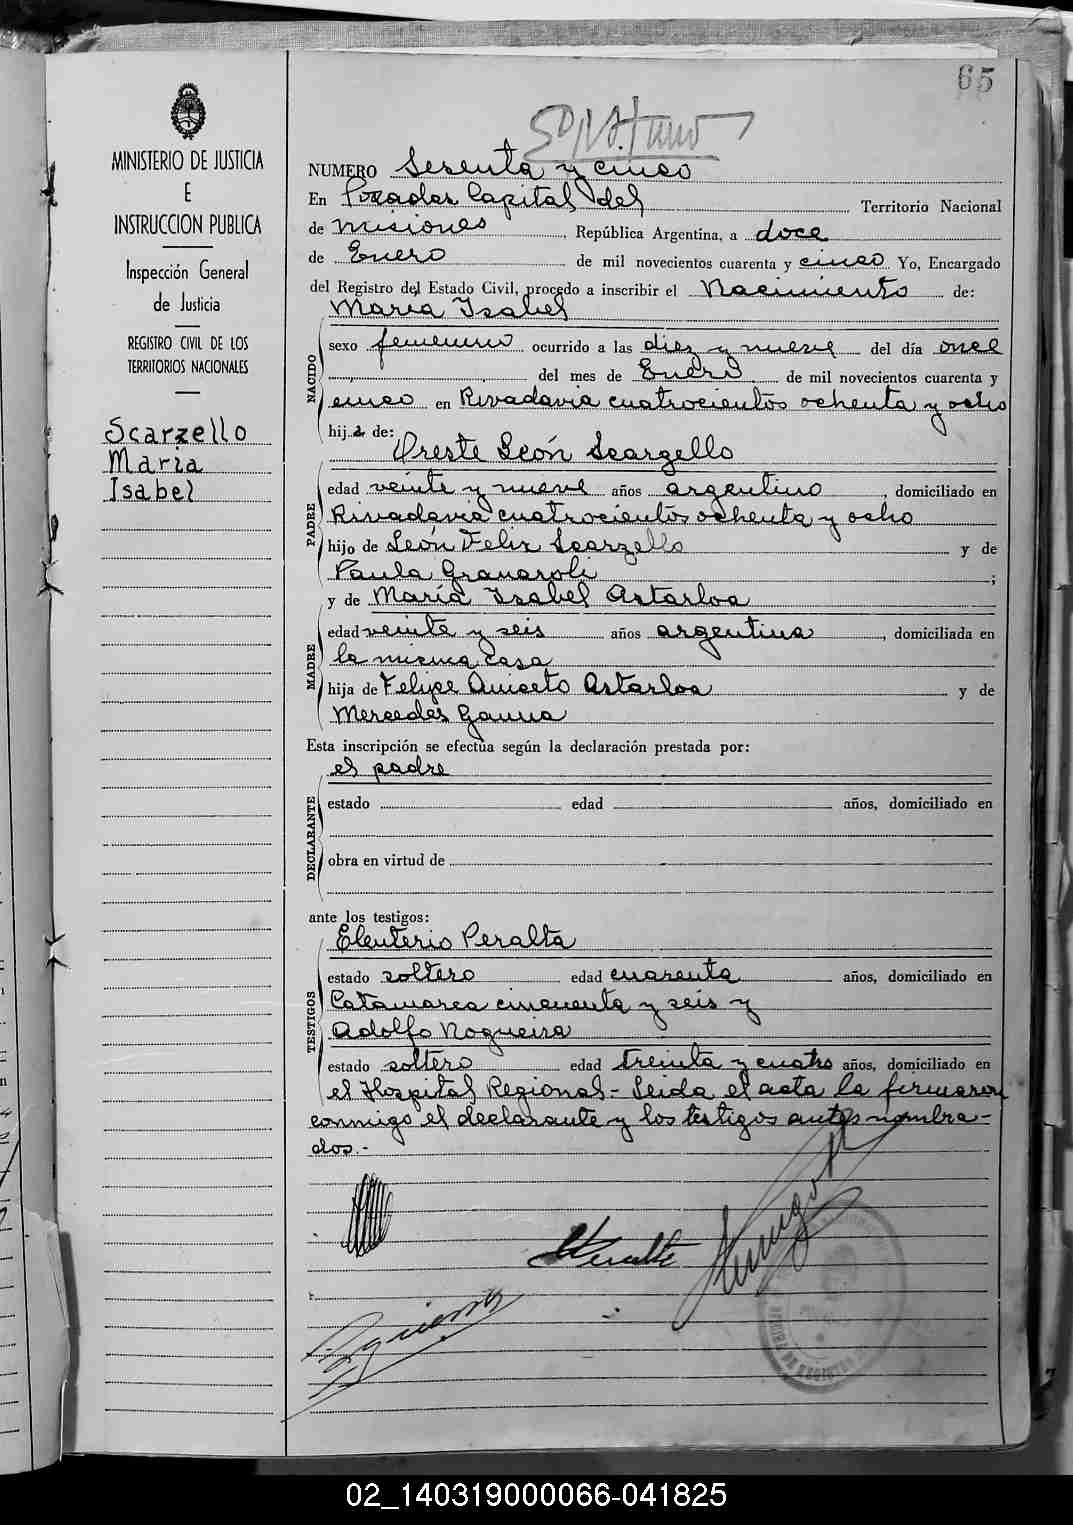 65
MINISTERIO DE JUSTICIA
E
INSTRUCCION PUBLICA
Inspección General
de Justicia
REGISTRO CIVIL DE LOS
TERRITORIOS NACIONALES
Scarzello
Maria
Isabel
NUMERO Sesenta y cinco
En Posadas Capital del Territorio Nacional
de Misiones, República Argentina, a doce
de Enero de mil novecientos cuarenta y cinco Yo, Encargado
del Registro del Estado Civil, procedo a inscribir el Nacimiento de:
María Isabel
NACIDO
sexo femenino ocurrido a las diez y nueve del día once
del mes de Enero de mil novecientos cuarenta y
cinco en Rivadavia cuatrocientos ochenta y ocho
hija de:
Oreste León Scarzello
PADRE
edad veinte y nueve años argentino, domiciliado en
Rivadavia cuatrocientos ochenta y ocho
hijo de León Felix Scarzello y de
Paula Granaroli;
y de María Isabel Astarloa
MADRE
edad veinte y seis años argentina, domiciliada en
la misma casa
hija de Felipe Aniceto Astarloa y de
Mercedes Gauna
Esta inscripción se efectúa según la declaración prestada por:
el padre
DECLARANTE
estado edad años, domiciliado en
obra en virtud de
ante los testigos:
Eleuterio Peralta
TESTIGOS
estado soltero edad cuarenta años, domiciliado en
Catamarca cincuenta y seis y
Adolfo Nogueira
estado soltero edad treinta y cuatro años, domiciliado en
el Hospital Regional - Leida el acta la firmaron
conmigo el declarante y los testigos antes nombra-
dos.-
02_140319000066-041825